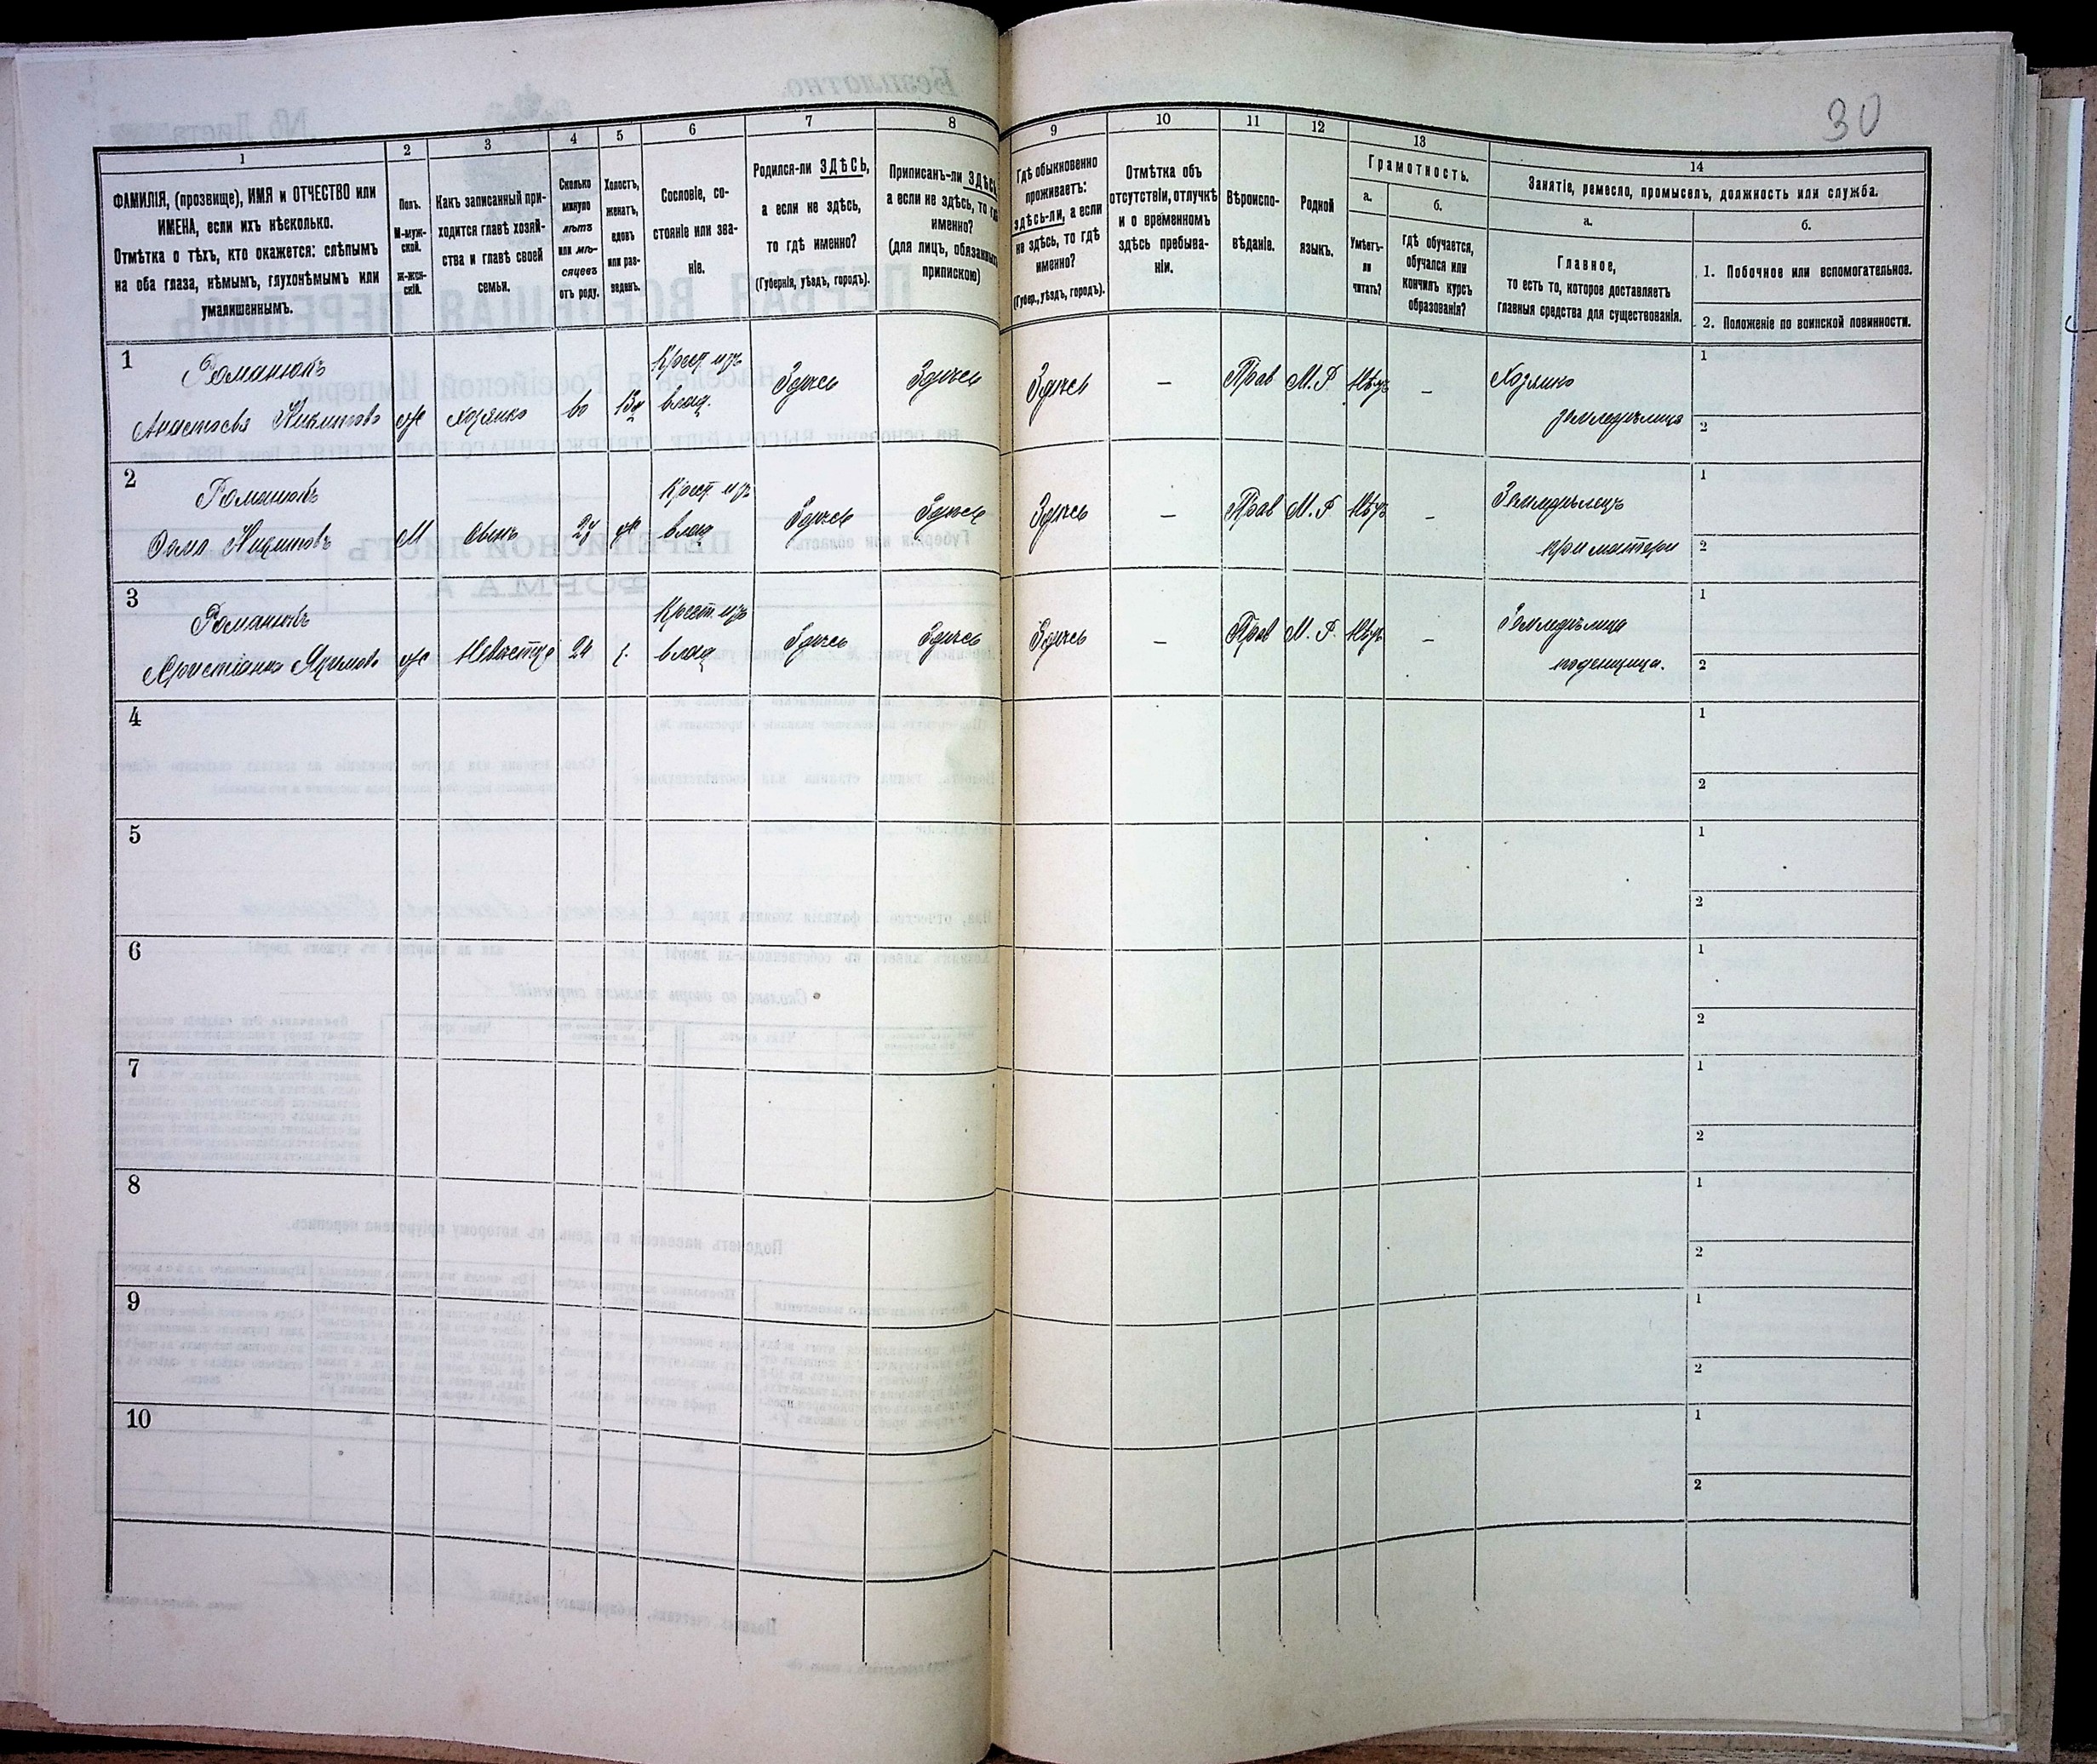 30
1
2
3
4
5
6
7
8
9
10
11
12
13
14
ФАМИЛІЯ, (прозвище), ИМЯ и ОТЧЕСТВО или
ИМЕНА, если ихъ нѣсколько.
Отмѣтка о тѣхъ, кто окажется: слѣпымъ
на оба глаза, нѣмымъ, глухонѣмымъ или
умалишеннымъ.
Полъ.
М-муж-
ской.
Ж-жен-
скій.
Какъ записанный при-
ходится главѣ хозяй-
ства и главѣ своей
семьи.
Сколько
минуло
лѣтъ
или мѣ-
сяцевъ
отъ роду.
Холостъ,
женатъ,
вдовъ
или раз-
веденъ.
Сословіе, со-
стояніе или зва-
ніе.
Родился-ли ЗДѢСЬ,
а если не здѣсь,
то гдѣ именно?
(Губернія, уѣздъ, городъ).
Приписанъ-ли ЗДѢСЬ,
а если не здѣсь, то гдѣ
именно?
(для лицъ, обязанныхъ
припискою)
Гдѣ обыкновенно
проживаетъ:
здѣсь-ли, а если
не здѣсь, то гдѣ
именно?
(Губер., уѣздъ, городъ).
Отмѣтка объ
отсутствіи, отлучкѣ
и о временномъ
здѣсь пребыва-
ніи.
Вѣроиспо-
вѣданіе.
Родной
языкъ.
Грамотность.
а.
Умѣетъ-
ли
читать?
б.
гдѣ обучается,
обучался или
кончилъ курсъ
образованія?
Занятіе, ремесло, промыселъ, должность или служба.
а.
Главное,
то есть то, которое доставляетъ
главныя средства для существованія.
б.
1. Побочное или вспомогательное.
2. Положеніе по воинской повинности.
1
Романюкъ
Анастасья Никитова
ж
хозяйка
60
Вд
Крест. изъ
влад.
Здѣсь
Здѣсь
Здѣсь
—
Прав
М.Р
Нѣтъ
—
Хозяйка
земледѣлица
1
2
2
Романюкъ
М
сынъ
ж
Крест. изъ
влад
Здѣсь
Здѣсь
Здѣсь
—
Прав
М.Р
Нѣтъ
—
Земледѣлецъ
при матери
1
2
3
Романюкъ
ж
Невѣстка
24
Крест. изъ
влад
Здѣсь
Здѣсь
Здѣсь
—
Прав
М.Р.
Нѣтъ
—
Земледѣлица
поденщица.
1
2
4
1
2
5
1
2
6
1
2
7
1
2
8
1
2
9
1
2
10
1
2